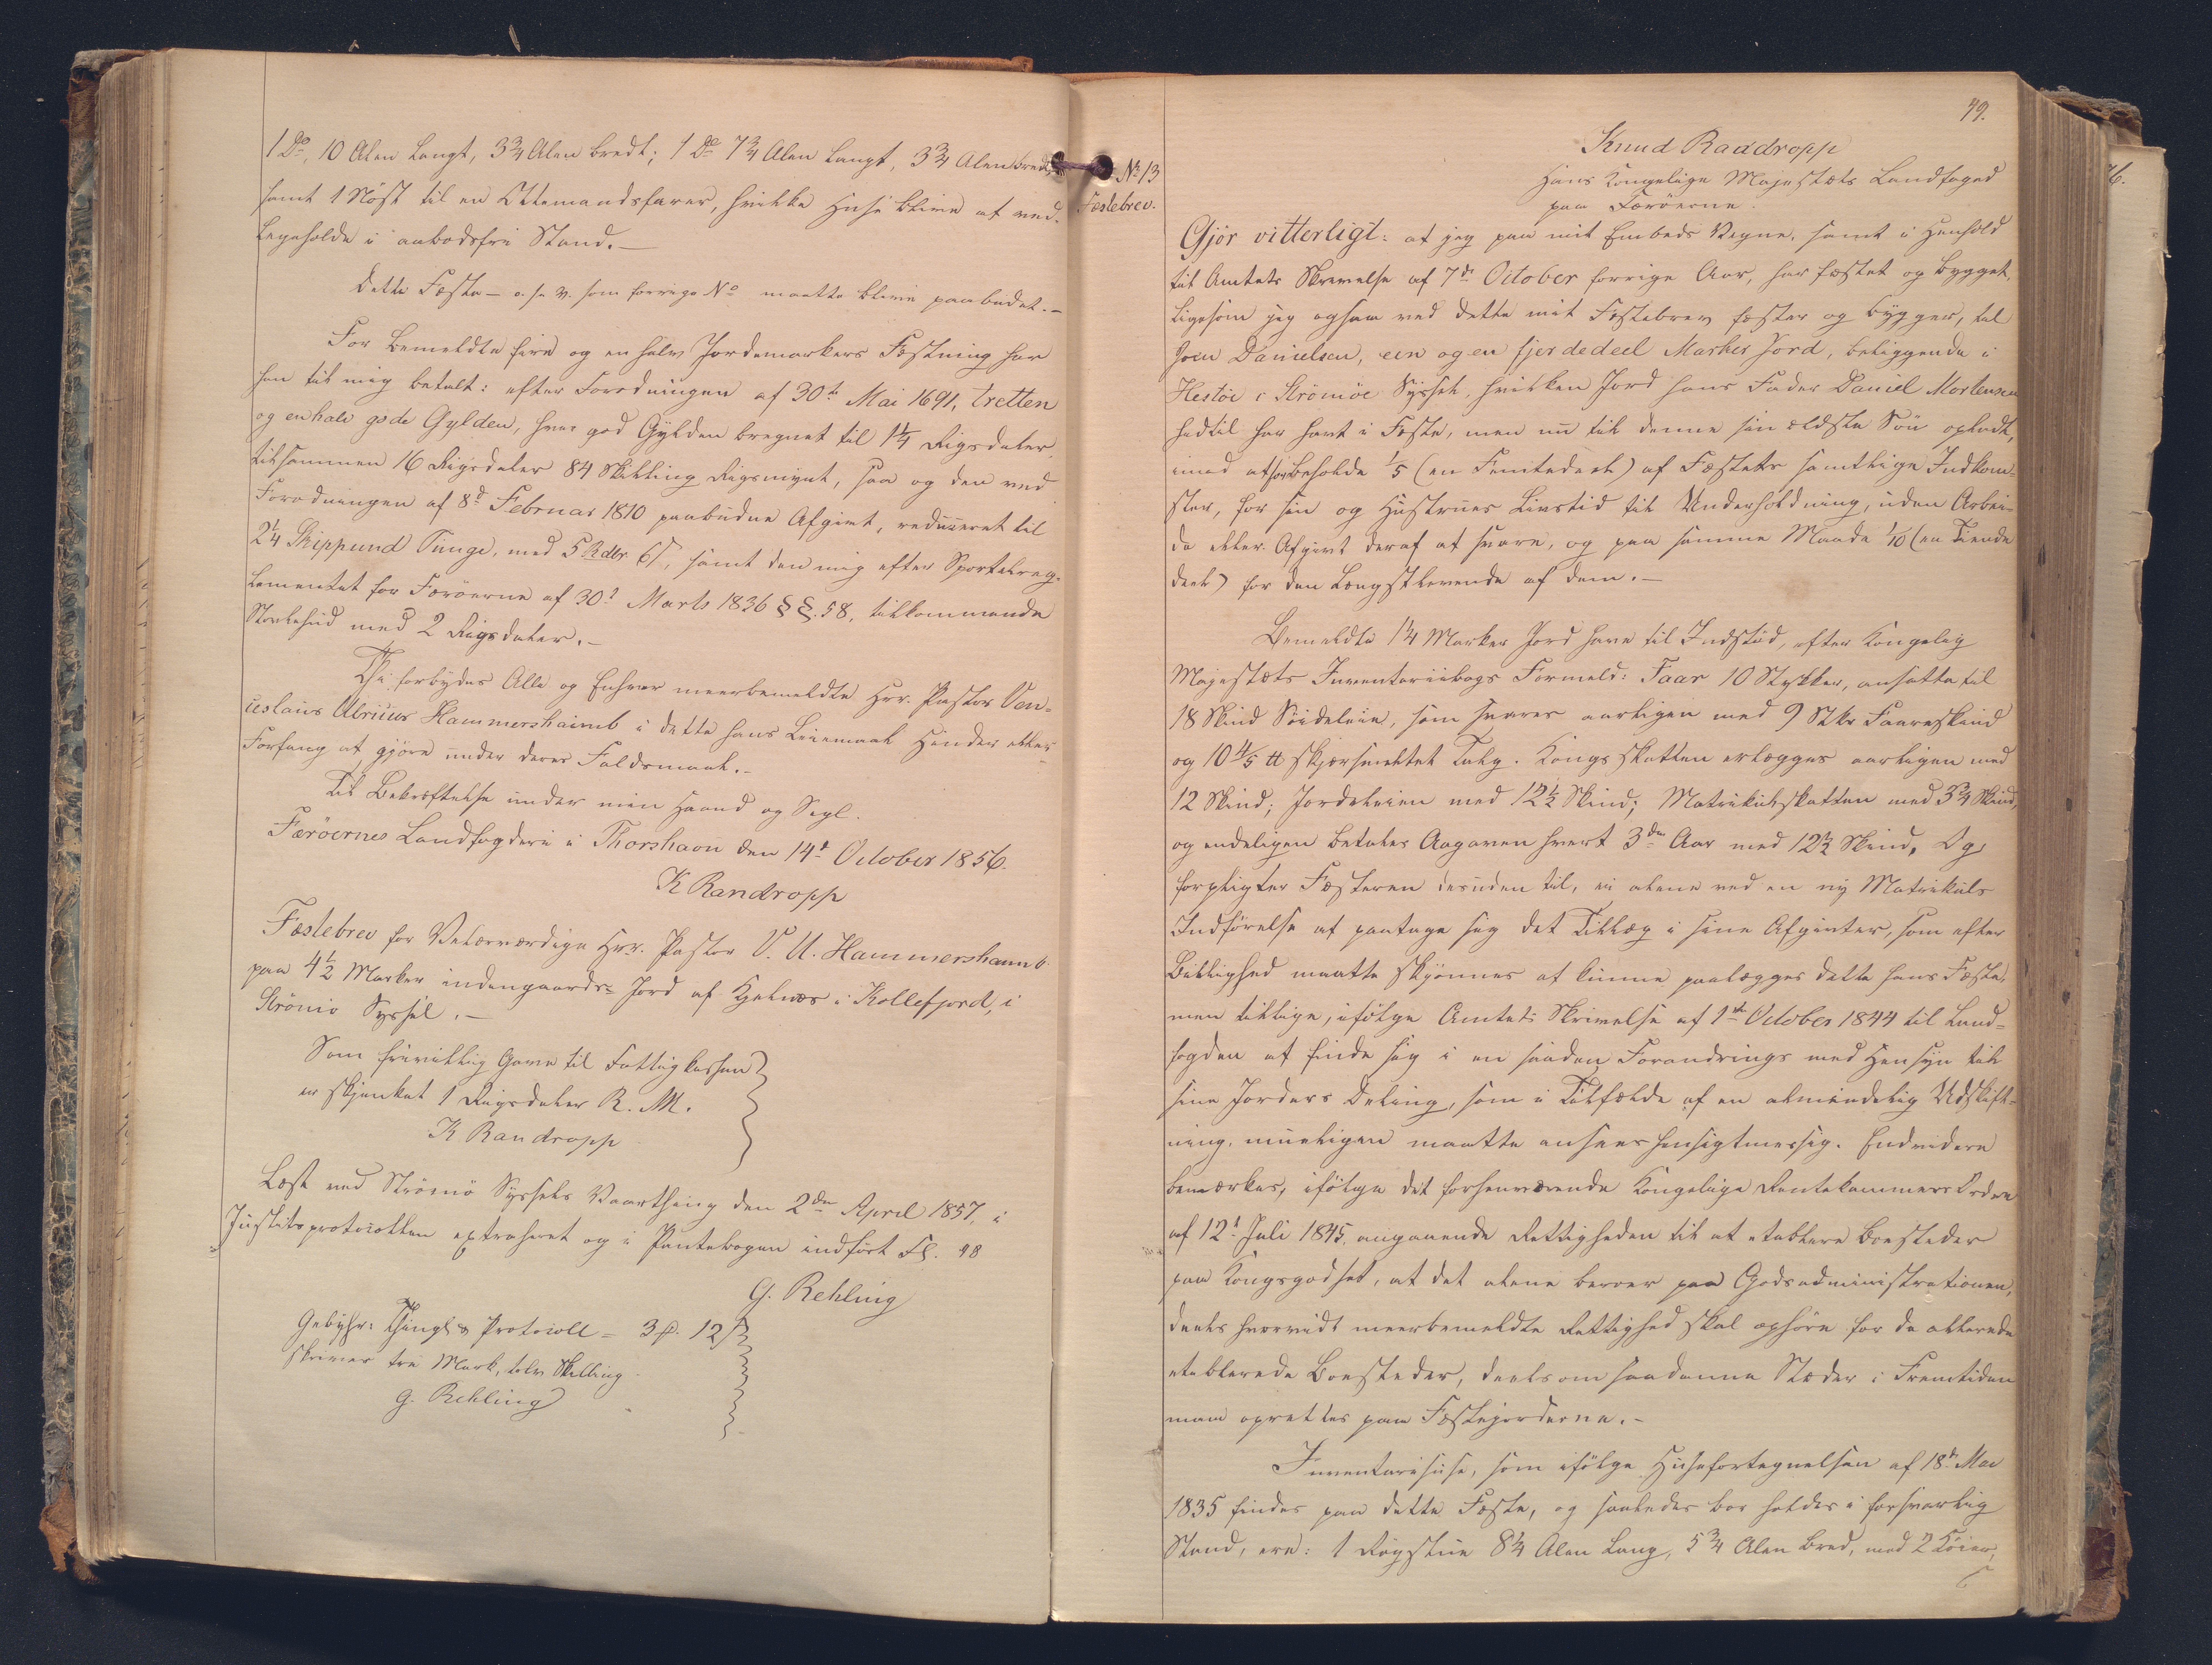 1 Do, 10 Alen langt, 3 3/4 Alen bredt; 1 Do 7 3/4 Alen langt, 3 3/4 Alen bredt,
samt 1 Nöst til en Ottemandsfarer, hvilke Huse blive at ved-
ligeholde i aabodsfri Stand.—
Dette Fæste — o. s. v. som forrige No maatte blive paabudet.—
For bemeldte fire og en halv Jordemarkers Fæstning har
han til mig betalt: efter Forordningen af 30te Mai 1691, tretten
og en halv gode Gylden, hver god Gylden beregnet til 1 1/4 Rigsdaler,
tilsammen 16 Rigsdaler 84 Skilling Rigsmynt, saa og den ved
Forordningen af 8d Februar 1810 paabudne Afgivt, reduceret til
2 1/4 Skippund Tunge, med 5 Rdlr 6 ß, samt den mig efter Sportelreg-
lementet for Færöerne af 30d Marts 1836 §§. 58, tilkommende
Störlehud med 2 Rigsdaler.—
Thi forbydes Alle og Enhver meerbemeldte Hrr. Pastor Ven-
ceslaus Ulricus Hammershaimb i dette hans Leiemaal Hinder eller
Forfang at gjöre under deres Faldsmaal.—
Til Bekræftelse under min Haand og Segl.
Færöernes Landfogderi i Thorshavn den 14d October 1856.
K Randropp
Fæstebrev for Velærværdige Hrr. Pastor V. U. Hammershaimb
paa 4 1/2 Marker indengaards- Jord af Hjelnæs i Kollefjord, i
Strömö Syssel.—
Som frivillig Gave til Fattigkassen
er skjenket 1 Rigsdaler R. M.
K Randropp
Læst ved Strömö Syssels Vaarthing den 2den April 1857, i
Justitsprotocollen extraheret og i Pantebogen indfört Fol. 48
G. Rehling
Gebyhr: Thingl. & Protocoll = 3 ß. 12 ß
skriver tre Mark, tolv Skilling.
G. Rehling
49.
No 13
Fæstebrev.
Knud Randropp
Hans Kongelige Majestæts Landfoged
paa Færöerne.
Gjör vitterligt: at jeg paa mit Embeds Vegne, samt i Henhold
til Amtets Skrivelse af 7de October forrige Aar, har fæstet og bygget,
ligesom jeg ogsaa ved dette mit Fæstebrev fæster og bygger, til
Joen Danielsen, een og en fjerdedeel Marker Jord, beliggende i
Hestöe i Strömöe Syssel, hvilken Jord hans Fader Daniel Mortensen
hidtil har havt i Fæste, men nu til denne sin ældste Sön opladt,
imod at beholde 1/5 (en Femtedeel) af Fæstets samtlige Indkom-
ster, for sin og Hustrues Livstid til Underholdning, uden Arbei-
de eller Afgivt deraf at svare, og paa samme Maade 1/10 (en Tiende
deel) for den Længstlevende af dem.—
Bemeldte 1 1/4 Marker Jord have til Indstöd, efter Kongelig
Majestæts Inventariibogs Formeld: Faar 10 Stykker, ansatte til
18 Skind Söideleie, som svares aarligen med 9 Stkr Faareskind
og 10 4/5 ℔ skjærsmeltet Talg. Kongsskatten erlægges aarligen med
12 Skind; Jordeleien med 12 1/2 Skind; Matrikulskatten med 3 3/4 Skind,
og endeligen betales Aagaven hvert 3die Aar med 12 1/2 Skind. Og
forpligter Fæsteren desuden til, ei alene ved en ny Matrikuls
Indförelse at paatage sig det Tillæg i sine Afgivter, som efter
Billighed maatte skjönnes at kunne paalægges dette hans Fæste,
men tillige, ifölge Amtets Skrivelse af 1ste October 1844 til Land-
fogden at finde sig i en saadan Forandrings med Hensyn til
sine Jorders Deling, som i Tilfælde af en almindelig Udskift-
ning, mueligen maatte ansees hensigtmessig. Endvidere
bemærkes, ifölge det forhenværende Kongelige Rentekammers Ordre
af 12d Juli 1845, angaaende Rettigheden til at etablere Boesteder
paa Kongsgodset, at det alene beroer paa Godsadministrationen,
deels hvorvidt meerbemeldte Rettighed skal ophöre for de allerede
etablerede Boesteder, deels om saadanne Stæder i Fremtiden
maa oprettes paa Fæstejorderne.—
Inventariihuse, som ifölge Husefortegnelsen af 18de Mai
1835 findes paa dette Fæste, og saaledes bör holdes i forsvarlig
Stand, ere: 1 Rögstue 8 1/4 Alen lang, 5 3/4 Alen bred, med 2 Köier,